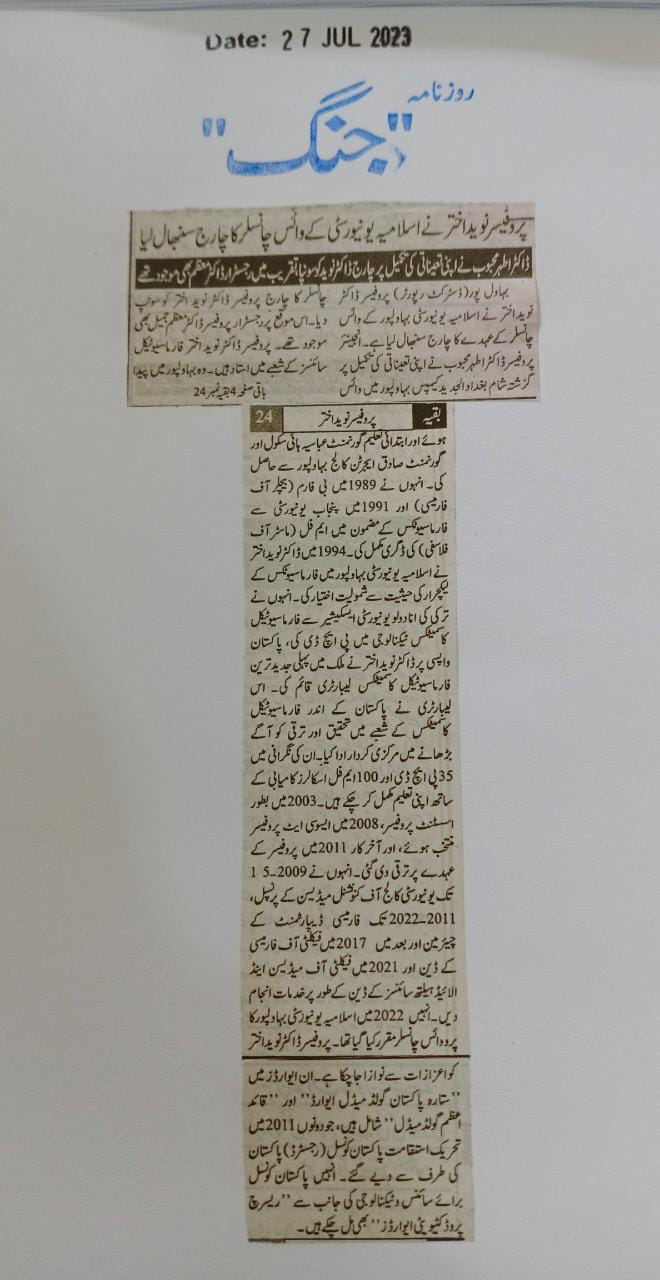 Date: 27 JUL 2023
روزنامہ
"جنگ"
پروفیسر نوید اختر نے اسلامیہ یونیورسٹی کے وائس چانسلر کا چارج سنبھال لیا
ڈاکٹر اطہر محبوب نے اپنی تعیناتی کی تکمیل پر چارج ڈاکٹر نوید کو سونپا، تقریب میں رجسٹرار ڈاکٹر معظم بھی موجود تھے
بہاول پور (ڈسٹرکٹ رپورٹر) پروفیسر ڈاکٹر
نوید اختر نے اسلامیہ یونیورسٹی بہاولپور کے وائس
چانسلر کے عہدے کا چارج سنبھال لیا ہے۔ انجینئر
پروفیسر ڈاکٹر اطہر محبوب نے اپنی تعیناتی کی تکمیل پر
گزشتہ شام بغداد الجدید کیمپس بہاولپور میں وائس
چانسلر کا چارج پروفیسر ڈاکٹر نوید اختر کو سونپ
دیا۔ اس موقع پر رجسٹرار پروفیسر ڈاکٹر معظم جمیل بھی
موجود تھے۔ پروفیسر ڈاکٹر نوید اختر فارماسیوٹیکل
سائنسز کے شعبے میں استاد ہیں۔ وہ بہاولپور میں پیدا
باقی صفحہ 4 بقیہ نمبر 24
بقیہ پروفیسر نوید اختر 24
ہوئے اور ابتدائی تعلیم گورنمنٹ عباسیہ ہائی سکول اور
گورنمنٹ صادق ایجرٹن کالج بہاولپور سے حاصل
کی۔ انہوں نے 1989 میں بی فارم (بیچلر آف
فارمیسی) اور 1991 میں پنجاب یونیورسٹی سے
فارماسیوٹکس کے مضمون میں ایم فل (ماسٹر آف
فلاسفی) کی ڈگری مکمل کی۔ 1994 میں ڈاکٹر نوید اختر
نے اسلامیہ یونیورسٹی بہاولپور میں فارماسیوٹکس کے
لیکچرار کی حیثیت سے شمولیت اختیار کی۔ انہوں نے
ترکی کی انادولو یونیورسٹی ایسکیشیر سے فارماسیوٹیکل
کاسمیٹکس ٹیکنالوجی میں پی ایچ ڈی کی، پاکستان
واپسی پر ڈاکٹر نوید اختر نے ملک میں پہلی جدید ترین
فارماسیوٹیکل کاسمیٹکس لیبارٹری قائم کی۔ اس
لیبارٹری نے پاکستان کے اندر فارماسیوٹیکل
کاسمیٹکس کے شعبے میں تحقیق اور ترقی کو آگے
بڑھانے میں مرکزی کردار ادا کیا۔ ان کی نگرانی میں
35 پی ایچ ڈی اور 100 ایم فل اسکالرز کامیابی کے
ساتھ اپنی تعلیم مکمل کر چکے ہیں۔ 2003 میں بطور
اسسٹنٹ پروفیسر، 2008 میں ایسوسی ایٹ پروفیسر
منتخب ہوئے، اور آخر کار 2011 میں پروفیسر کے
عہدے پر ترقی دی گئی۔ انہوں نے 2009-15
تک یونیورسٹی کالج آف کنونشنل میڈیسن کے پرنسپل،
2011-2022 تک فارمیسی ڈیپارٹمنٹ کے
چیئرمین اور بعد میں 2017 میں فیکلٹی آف فارمیسی
کے ڈین اور 2021 میں فیکلٹی آف میڈیسن اینڈ
الائیڈ ہیلتھ سائنسز کے ڈین کے طور پر خدمات انجام
دیں۔ انہیں 2022 میں اسلامیہ یونیورسٹی بہاولپور کا
پرو وائس چانسلر مقرر کیا گیا تھا۔ پروفیسر ڈاکٹر نوید اختر
کو اعزازات سے نوازا جا چکا ہے۔ ان ایوارڈز میں
"ستارہ پاکستان گولڈ میڈل ایوارڈ" اور "قائد
اعظم گولڈ میڈل" شامل ہیں، جو دونوں 2011 میں
تحریک استقامت پاکستان کونسل (رجسٹرڈ) پاکستان
کی طرف سے دیے گئے۔ انہیں پاکستان کونسل
برائے سائنس و ٹیکنالوجی کی جانب سے "ریسرچ
پروڈکٹیویٹی ایوارڈز" بھی مل چکے ہیں۔